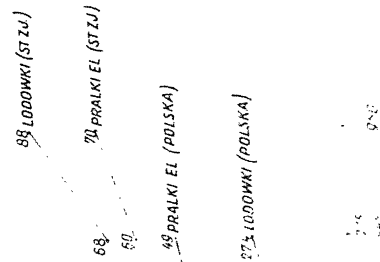 88 LODOWKI (ST ZJ.)
70 PRALKI EL (ST ZJ)
68
60
49 PRALKI EL (POLSKA)
27½ LODOWKI (POLSKA)